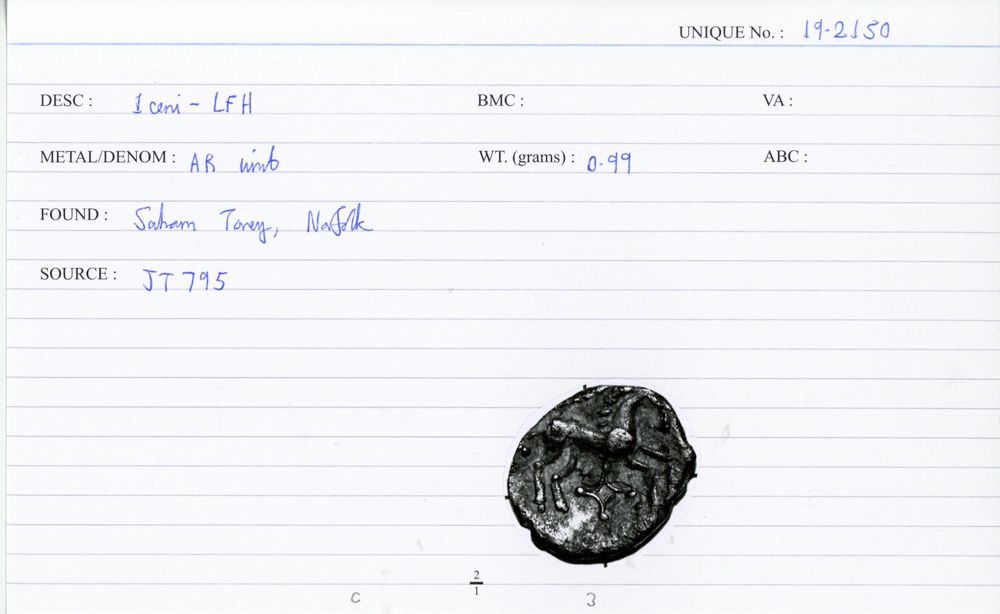 UNIQUE No. : 19-2150
DESC : Iceni - LFH BMC : VA :
METAL/DENOM : AR unit WT. (grams) : 0.99 ABC :
FOUND : Saham Toney, Norfolk
SOURCE : JT 795
2
1
C 3